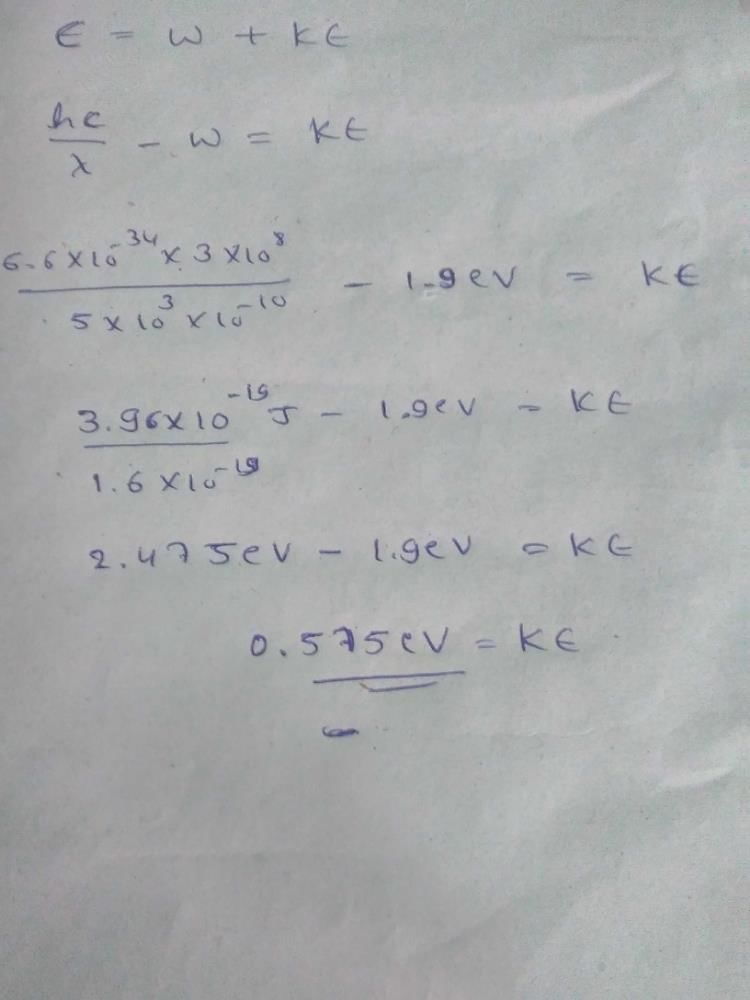 E = W + KE
hc/λ - W = KE
6.6 × 10^-34 × 3 × 10^8 / 5 × 10^3 × 10^-10 - 1.9 eV = KE
3.96 × 10^-19 J / 1.6 × 10^-19 - 1.9 eV = KE
2.475 eV - 1.9 eV = KE
0.575 eV = KE